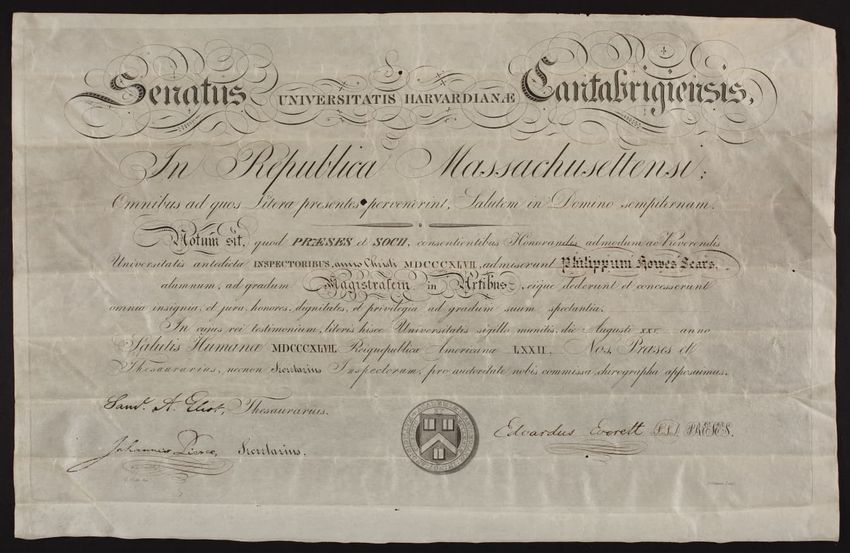 Senatus UNIVERSITATIS HARVARDIANÆ Cantabrigiensis,
In Republica Massachusettensi;
Omnibus ad quos Litera presentes pervenerint, Salutem in Domino sempiternam.
Notum sit, quod PRÆSES et SOCII, consentientibus Honorandis admodum ac Reverendis
Universitatis antedictæ INSPECTORIBUS, anno Christi MDCCCXLVII, admiserunt Philippum Howes Sears,
alumnum, ad gradum Magistralem in Artibus, eique dederunt et concesserunt
omnia insignia, et jura, honores, dignitates, et privilegia ad gradum suum spectantia.
In cujus rei testimonium, literis hisce Universitatis sigillo munitis, die Augusti XXV anno
Salutis Humanæ MDCCCXLVII, Reiquepublicæ Americanæ LXXII, Nos, Præses et
Thesaurarius, necnon Secretarius Inspectorum, pro auctoritate nobis commissa, chirographa apposuimus.
Saml. A. Eliot, Thesaurarius.
Edvardus Everett PRÆSES.
Johannes Pierce, Secretarius.